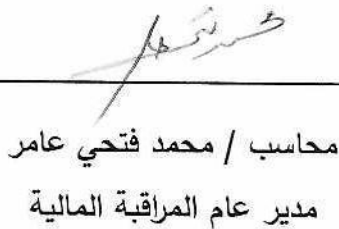 محاسب / محمد فتحي عامر
مدير عام المراقبة المالية